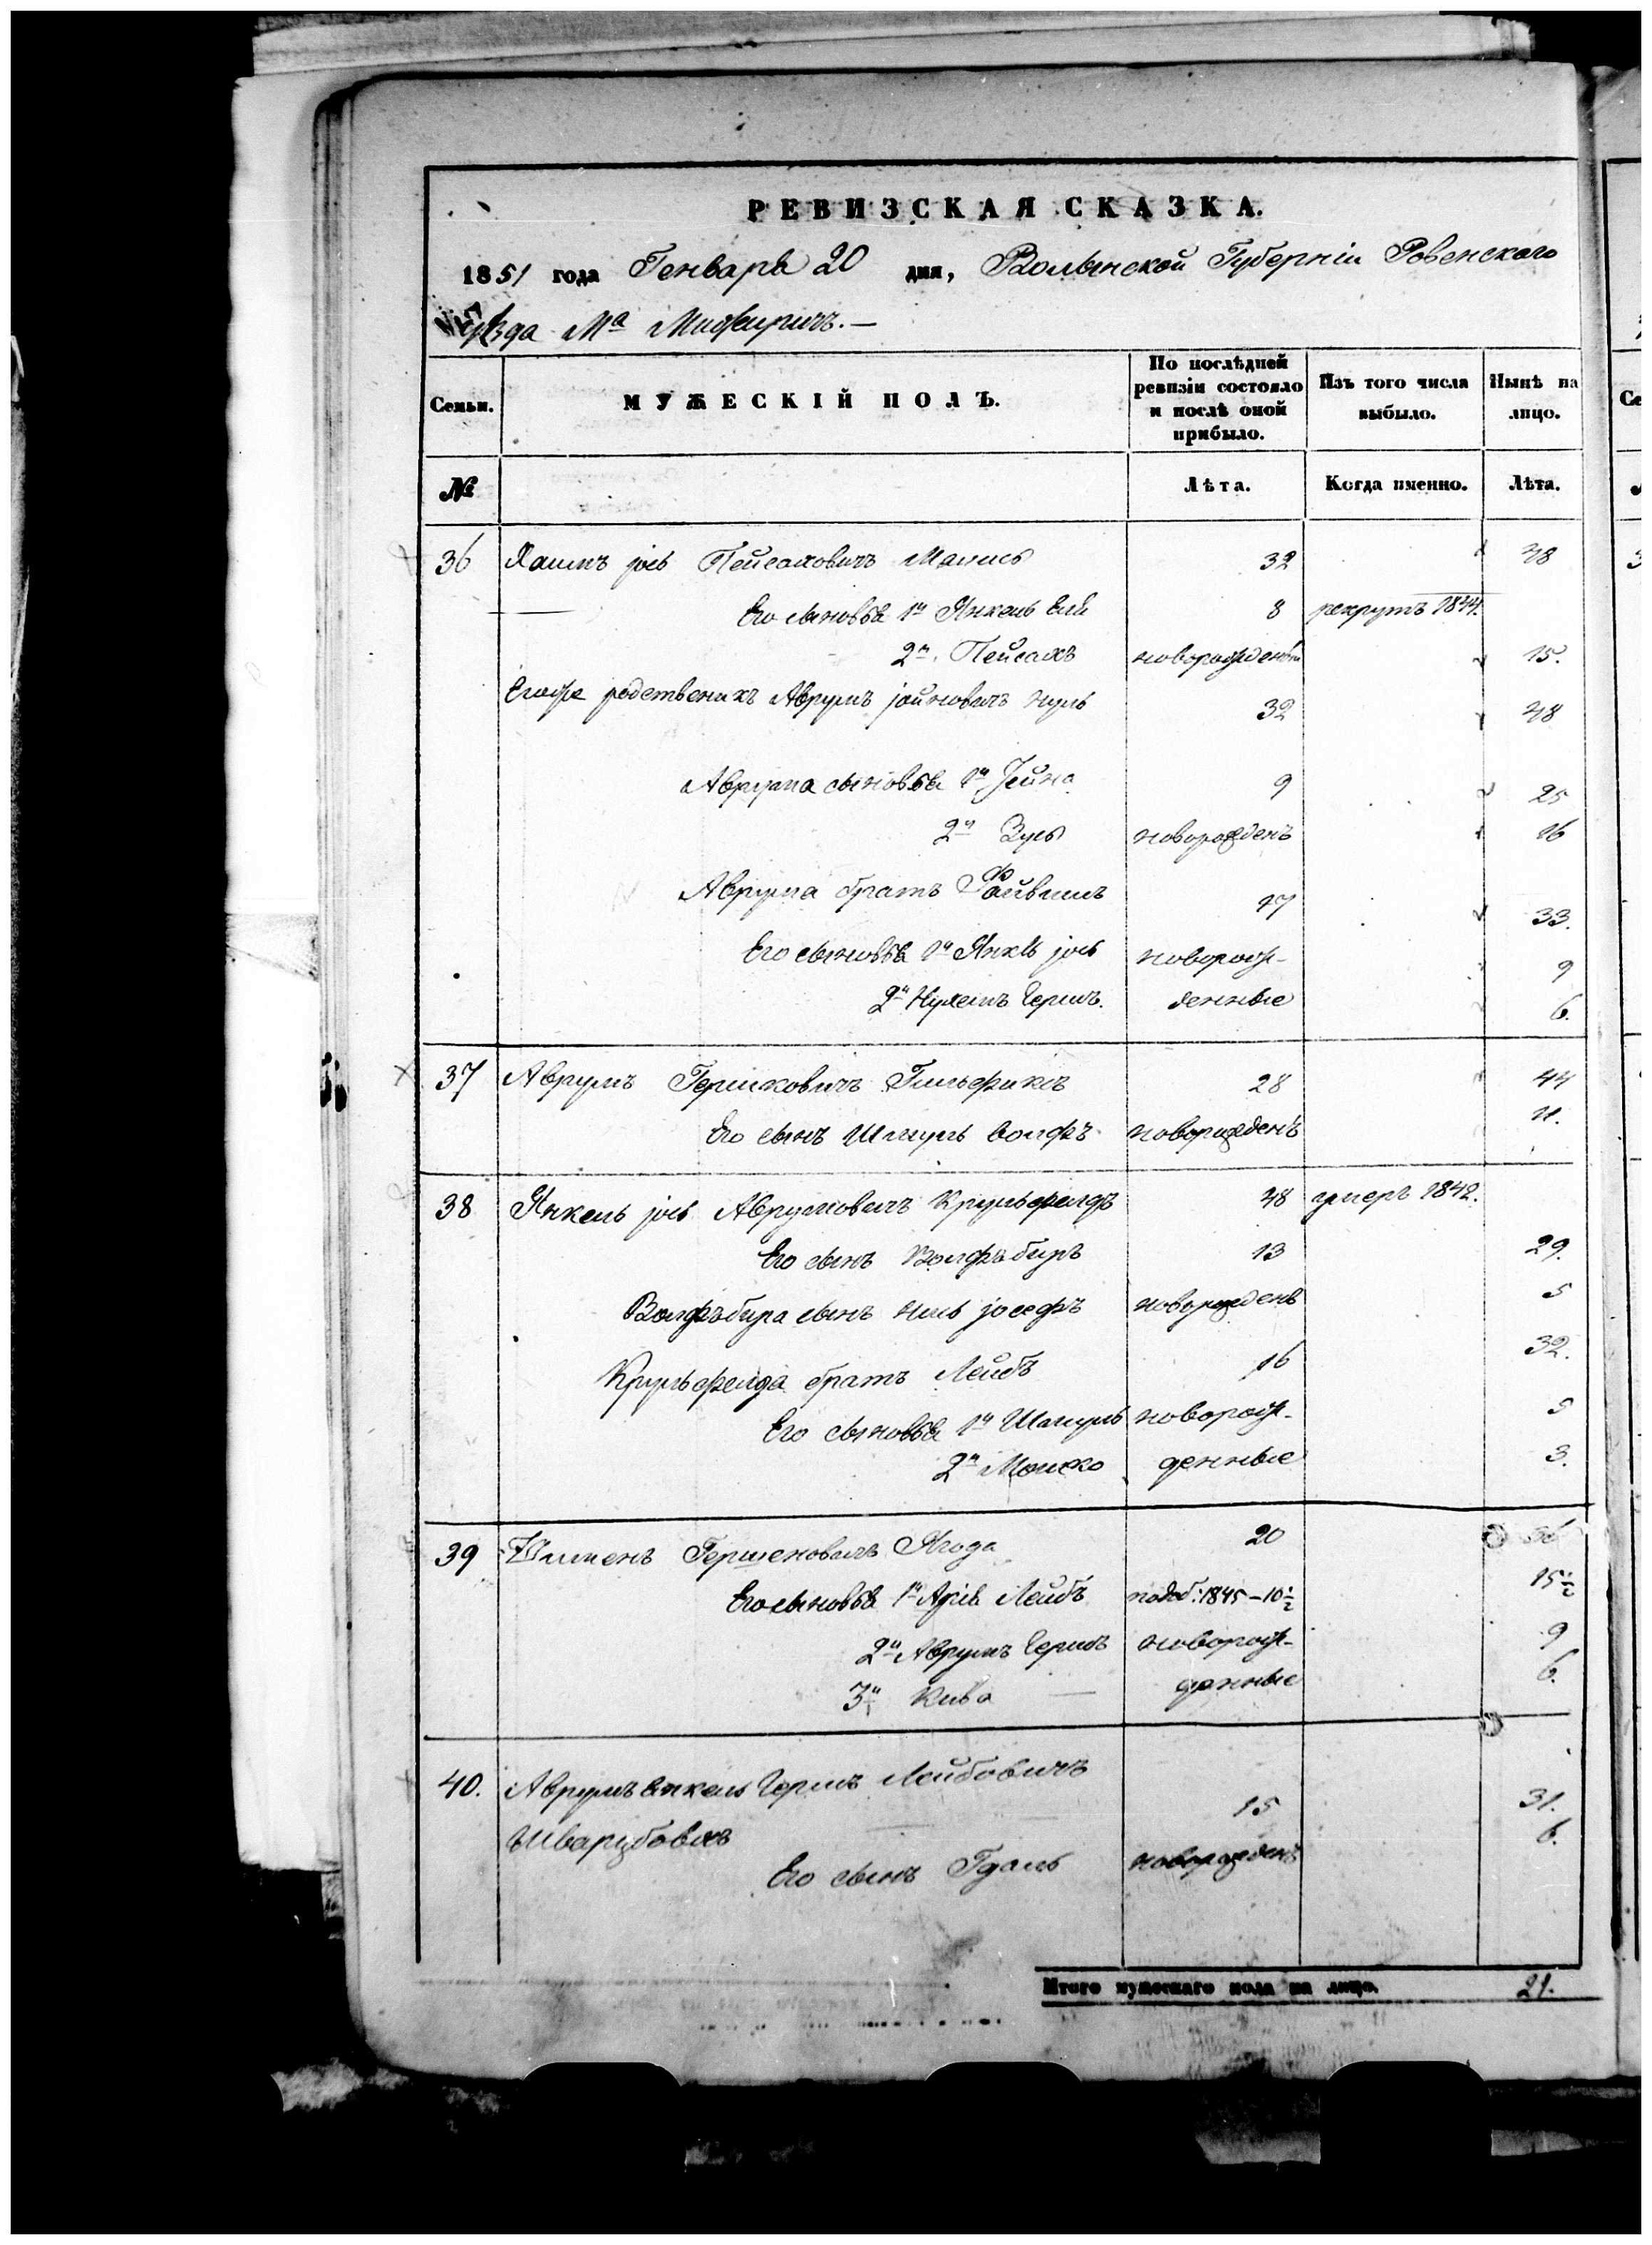 РЕВИЗСКАЯ СКАЗКА.
1851 года Генваря 20 дня, Волынской Губерніи Ровенского
уѣзда Мa Межиричъ.—
Семьи. МУЖЕСКІЙ ПОЛЪ. По послѣдней ревизіи состояло и послѣ оной прибыло. Изъ того числа выбыло. Нынѣ на лицо.
№ Лѣта. Когда именно. Лѣта.
36 Хаимъ іось Пейсаховичъ 32 48
Его сыновья 1й Янкель Еля 8 рекрутъ 1844.
2й Пейсахъ новорожденый 15.
Егоже родственикъ Аврумъ іойновичъ 32 48
Аврума сыновья 1й Іойна 9 25
2й Зусь новорожденъ 16
Аврума братъ Файвишъ 17 33.
Его сыновья 1й Янкѣ іось новорож- 9
2й Нухемъ Гершъ. денные 6.
37 Аврумъ Гершковичъ 28 44
Его сынъ Шмуль Волфъ новорожденъ 11.
38 Янкель іось Аврумовичъ Крульфелдъ 48 умеръ 1842.
Его сынъ Волфъ биръ 13 29.
Волфъ бира сынъ іосефъ новорожденъ 5
Крульфелда братъ Лейбъ 16 32.
Его сыновья 1й Шмуль новорож- 5
2й Мошко денные 3.
39 Гершеновичъ Ягода 20 36
Его сыновья 1й Аріе Лейбъ 1845-10½ 15½
2й Аврумъ Гершъ новорож- 9
3й Кива денные 6.
40. Аврумъ Янкель Гершъ Лейбовичъ
15 31.
Его сынъ Гдаль новорожденъ 6.
Итого мужескаго пола на лицо. 21.